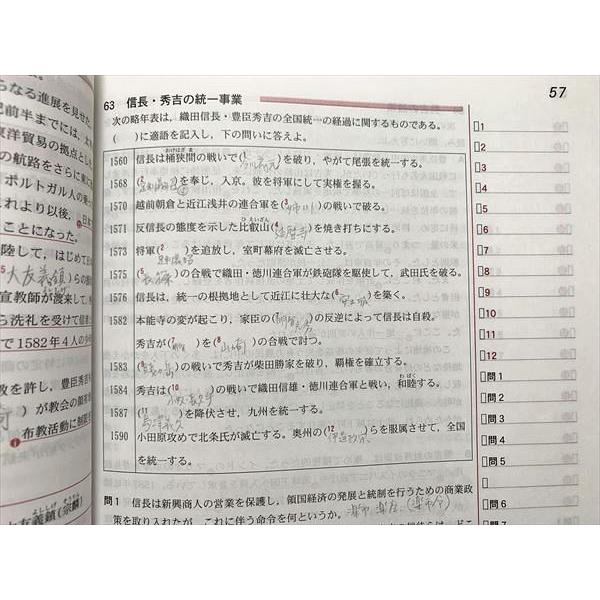 らなる進展を見せた
己前半までには，太
東洋貿易の拠点とし
の航路をさらに東に
ポルトガル人の乗っ
これより以後，
ことになった。
陸して，はじめて日
大友義鎮)らの援
宣教師が渡来して，
ら洗礼を受けて信者
で1582年4人の少年
教を許し，豊臣秀吉
)が教会の領
布教活動に制限
大友義鎮(宗麟)
63 信長・秀吉の統一事業
57
次の略年表は，織田信長・豊臣秀吉の全国統一の経過に関するものである。
( )に適語を記入し，下の問いに答えよ。
1560 信長は桶狭間の戦いで(1 今川義元)を破り，やがて尾張を統一する。
1568 (2 足利義昭)を奉じ，入京。彼を将軍にして実権を握る。
1570 越前朝倉と近江浅井の連合軍を(3 姉川)の戦いで破る。
1571 反信長の態度を示した比叡山(4 延暦寺)を焼き打ちにする。
1573 将軍(2 足利義昭)を追放し，室町幕府を滅亡させる。
1575 (5 長篠)の合戦で織田・徳川連合軍が鉄砲隊を駆使して，武田氏を破る。
1576 信長は，統一の根拠地として近江に壮大な(6 安土城)を築く。
1582 本能寺の変が起こり，家臣の(7 明智光秀)の反逆によって信長は自殺。
秀吉が(7 明智)を(8 山崎)の合戦で討つ。
1583 (9 賤ヶ岳)の戦いで秀吉が柴田勝家を破り，覇権を確立する。
1584 秀吉は(10 小牧・長久手)の戦いで織田信雄・徳川連合軍と戦い，和睦する。
1587 (11 島津義久)を降伏させ，九州を統一する。
1590 小田原攻めで北条氏が滅亡する。奥州の(12 伊達政宗)らを服属させて，全国
を統一する。
問1 信長は新興商人の営業を保護し，領国経済の発展と統制を行うための商業政
策を取り入れたが，これに伴う命令を何というか。楽市・楽座 (楽市令)
1
2
3
4
5
6
7
8
9
10
11
12
問1
問2
問3
問4
問5
問6
問7
問8